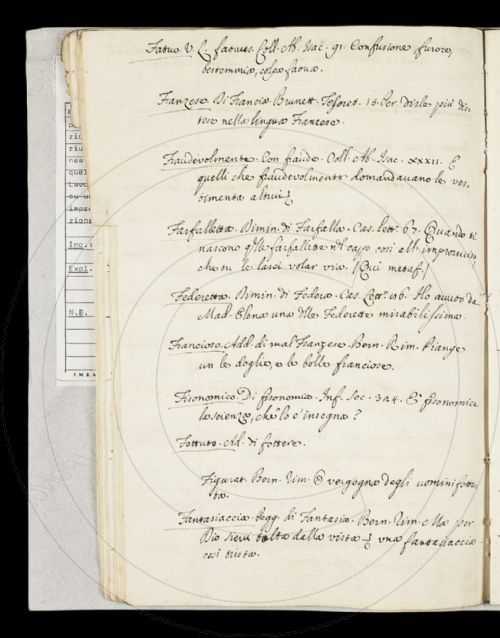 Fatuo. V. L. fatuus. Coll. Ab. Isac. 91. Confusione furore,
bestemmia, colpa fatua.
Franzese. Di Francia Brunett. Tesoret. 16. Per dirle più
tese nella lingua Franzese.
Fraudevolmente. Con fraude. Coll. Ab. Isac. XXXII. E
quelli che fraudevolmente domandavano le ves-
timenta altrui
Farfalletta. Dimin. di Farfalla. Cas. lett. 67. Quando ti
nascono qlle farfallette nel capo così all' improvviso,
che tu le lasci volar via. [Qui metaf.]
Federetta. Dimin. di Federa. Cas. Lett. 116. Ho avuto da
Mad. Elena una dlle Federette mirabilissima.
Francioso. Add. di mal Franzese. Bern. Rim. Piange
un le doglie, e le bolle franciose.
Fisonomico. Di fisonomia. Inf. Sec. 324. E fisonomica
la scienza, che lo c'insegna?
Fottuto. Ad. di fottere.
Figurat. Bern. Rim. O vergogna degli uomini fottu-
ta.
Fantasiaccia. Pegg. di Fantasia. Bern. Rim. Ma per
Dio sieu tolta dalla vista una fantasiaccia
così trista.
Inc.:
Expl.
N.B.